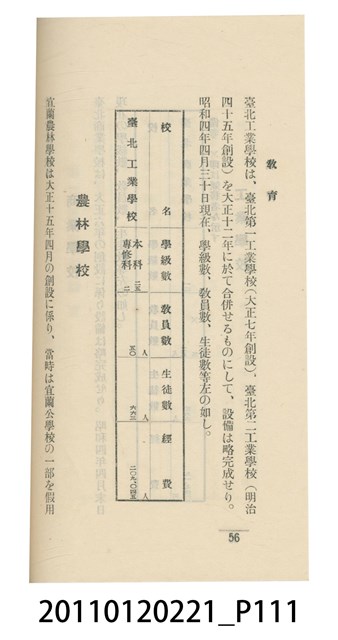 敎育
臺北工業學校は、臺北第一工業學校(大正七年創設)、臺北第二工業學校(明治
四十五年創設)を大正十二年に於て合併せるものにして、設備は略完成せり。
昭和四年四月三十日現在、學級數、敎員數、生徒數等左の如し。
校名 學級數 敎員數 生徒數 經費
臺北工業學校 本科 專修科 人 五〇 人 六六三
農林學校
宜蘭農林學校は大正十五年四月の創設に係り、當時は宜蘭公學校の一部を假用
56
20110120221_P111